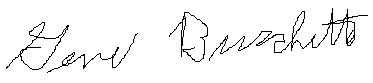 Gene Buzchetto